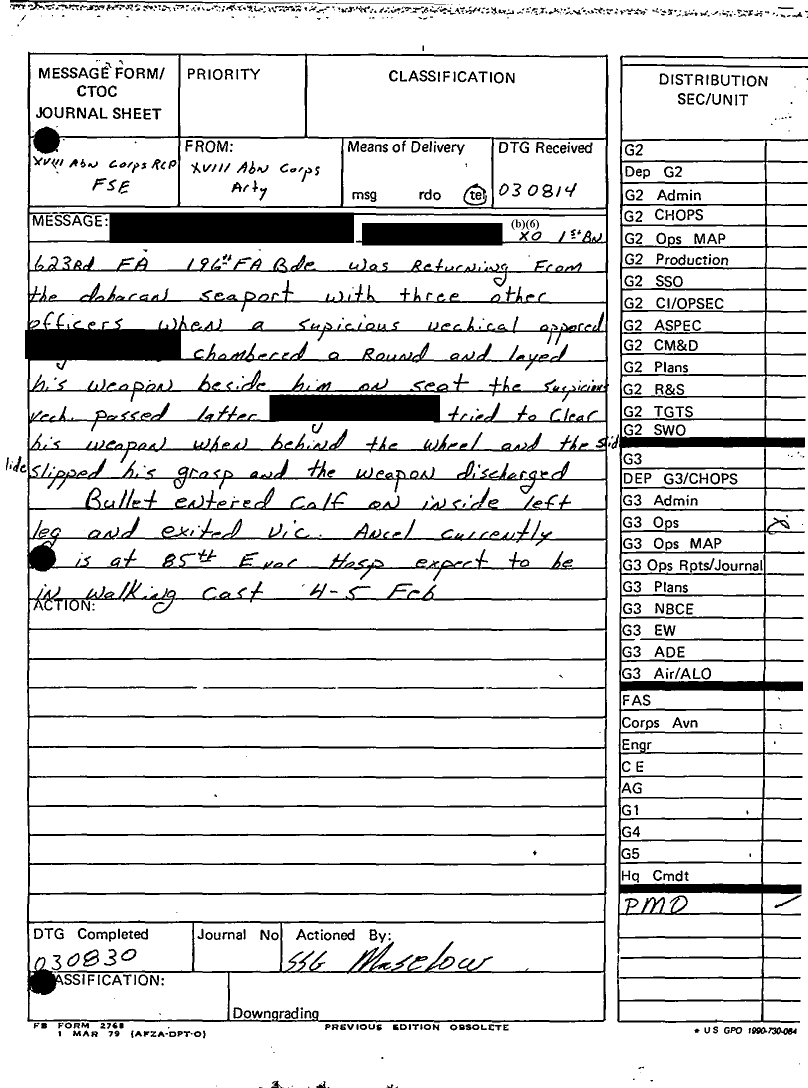 MESSAGE FORM/
CTOC
JOURNAL SHEET
PRIORITY
CLASSIFICATION
XVIII Abn Corps RCP
FSE
FROM:
XVIII Abn Corps
Arty
Means of Delivery
msg rdo tel
DTG Received
030814
MESSAGE:
(b)(6)
XO 1st Bn
623rd FA 196th FA Bde was Returning From
the daharan seaport with three other
officers when a supicious vechical appored
chambered a Round and layed
his weapon beside him on seat the suspicious
vech. passed latter tried to Clear
his weapon when behind the wheel and the slid
lide slipped his grasp and the weapon discharged
Bullet entered Calf on inside left
leg and exited vic. Ancel currently
is at 85th Evac Hosp expect to be
in walking Cast 4-5 Feb
ACTION:
DTG Completed
030830
Journal No
Actioned By:
SSG Maselow
ASSIFICATION:
Downgrading
FB FORM 2768
1 MAR 79 (AFZA-DPT-O)
PREVIOUS EDITION OBSOLETE
DISTRIBUTION
SEC/UNIT
G2
Dep G2
G2 Admin
G2 CHOPS
G2 Ops MAP
G2 Production
G2 SSO
G2 CI/OPSEC
G2 ASPEC
G2 CM&D
G2 Plans
G2 R&S
G2 TGTS
G2 SWO
G3
DEP G3/CHOPS
G3 Admin
G3 Ops X
G3 Ops MAP
G3 Ops Rpts/Journal
G3 Plans
G3 NBCE
G3 EW
G3 ADE
G3 Air/ALO
FAS
Corps Avn
Engr
C E
AG
G1
G4
G5
Hq Cmdt
PMO ✓
* US GPO 1990-730-084